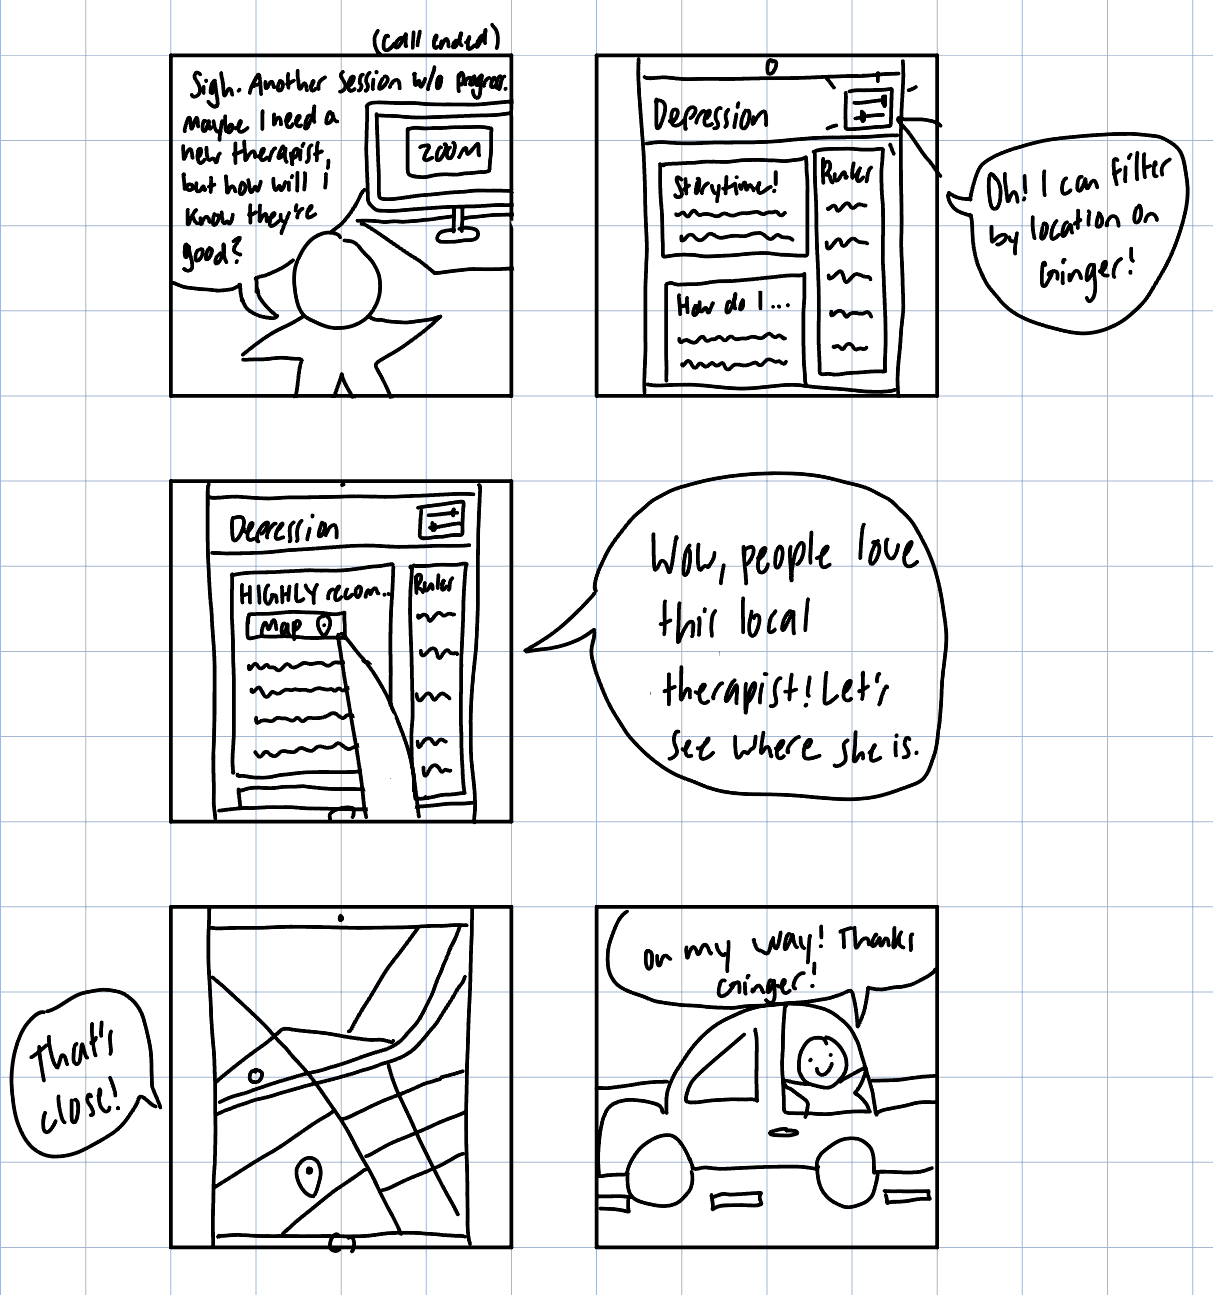 (call ended)
Sigh. Another session w/o progress.
Maybe I need a
new therapist,
but how will I
know they're
good?
ZOOM
Depression
Storytime!
Rules
How do I...
Oh! I can filter
by location on
Ginger!
Depression
HIGHLY recom..
Rules
Map
Wow, people love
this local
therapist! Let's
see where she is.
That's
close!
On my way! Thanks
Ginger!